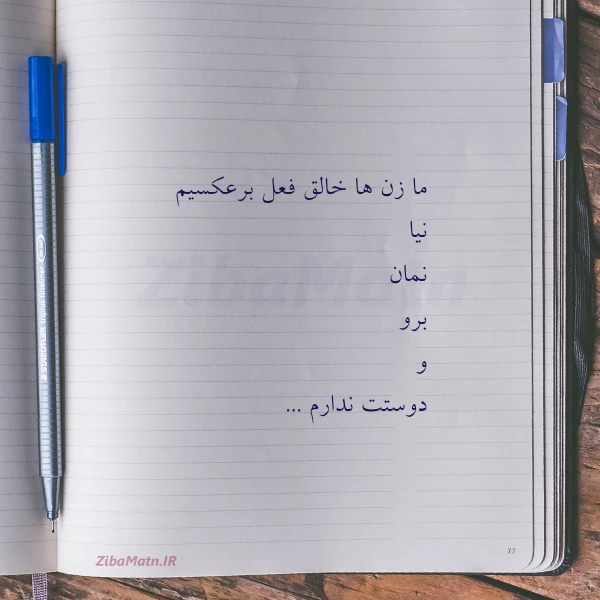 ما زن ها خالق فعل برعکسیم
نیا
نمان
برو
و
دوستت ندارم ...
ZibaMatn
77
ZibaMatn.IR